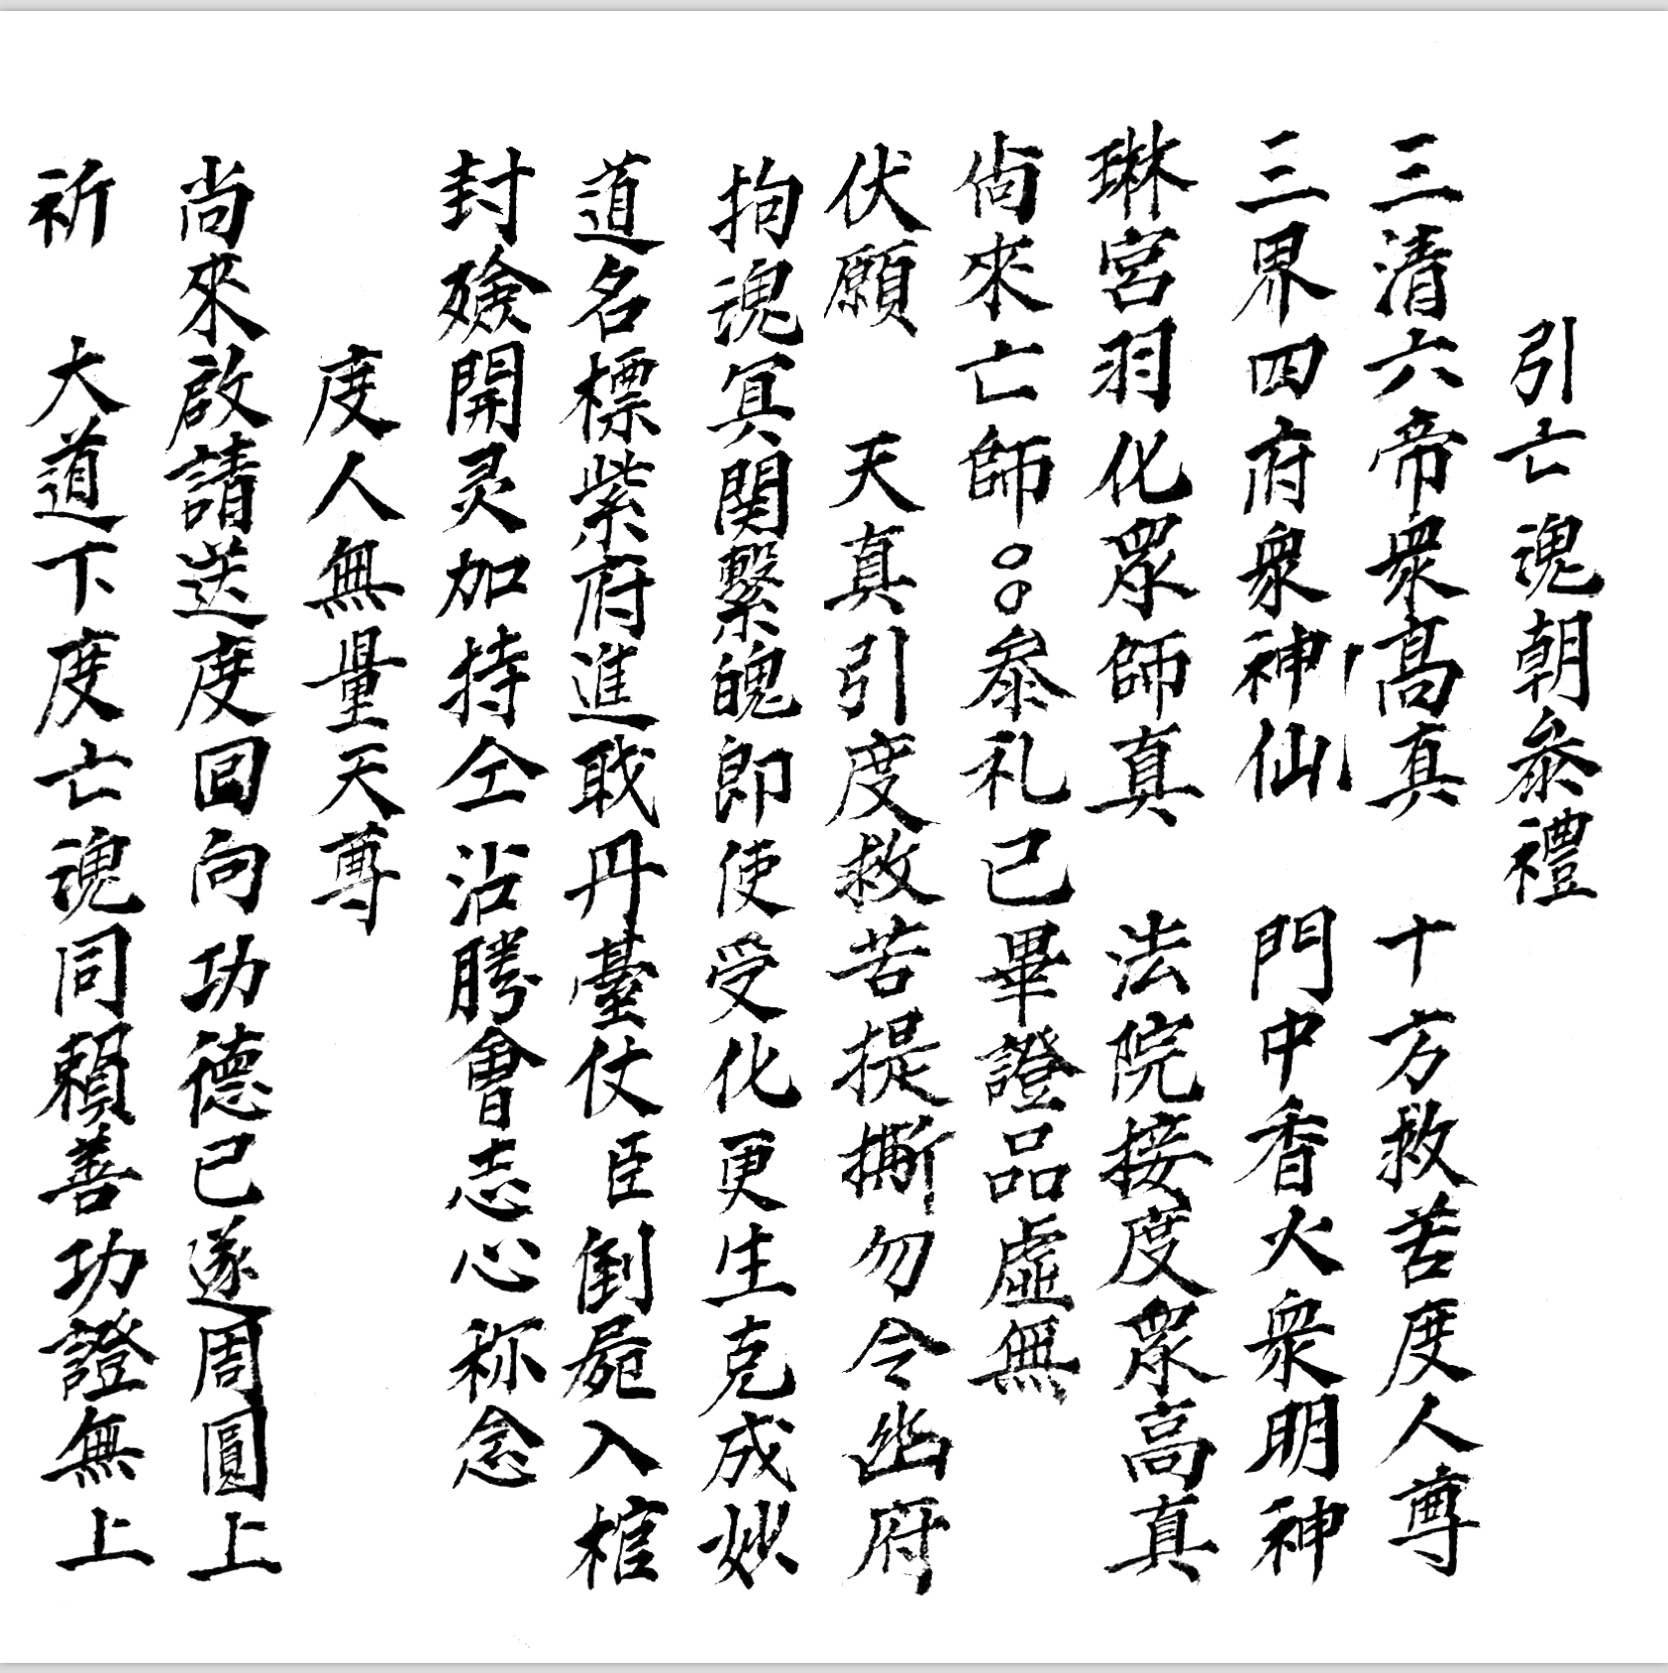 引亡魂朝叅禮
三清六帝衆髙真　十方救苦度人尊
三界四府衆神仙　門中香火衆明神
琳宮羽化眾師真　法院接度眾高真
尙來亡師〇〇叅礼已畢證品虛無
伏願　天真引度救苦提撕勿令幽府
拘魂冥関繫魄即使受化更生克成妙
道名標紫府進戢丹臺仗臣倒屍入棺
封殮開灵加持仝沾勝會志心称念
度人無量天尊
尚來啟請送度回向功德已遂周圓上
祈　大道下度亡魂同賴善功證無上